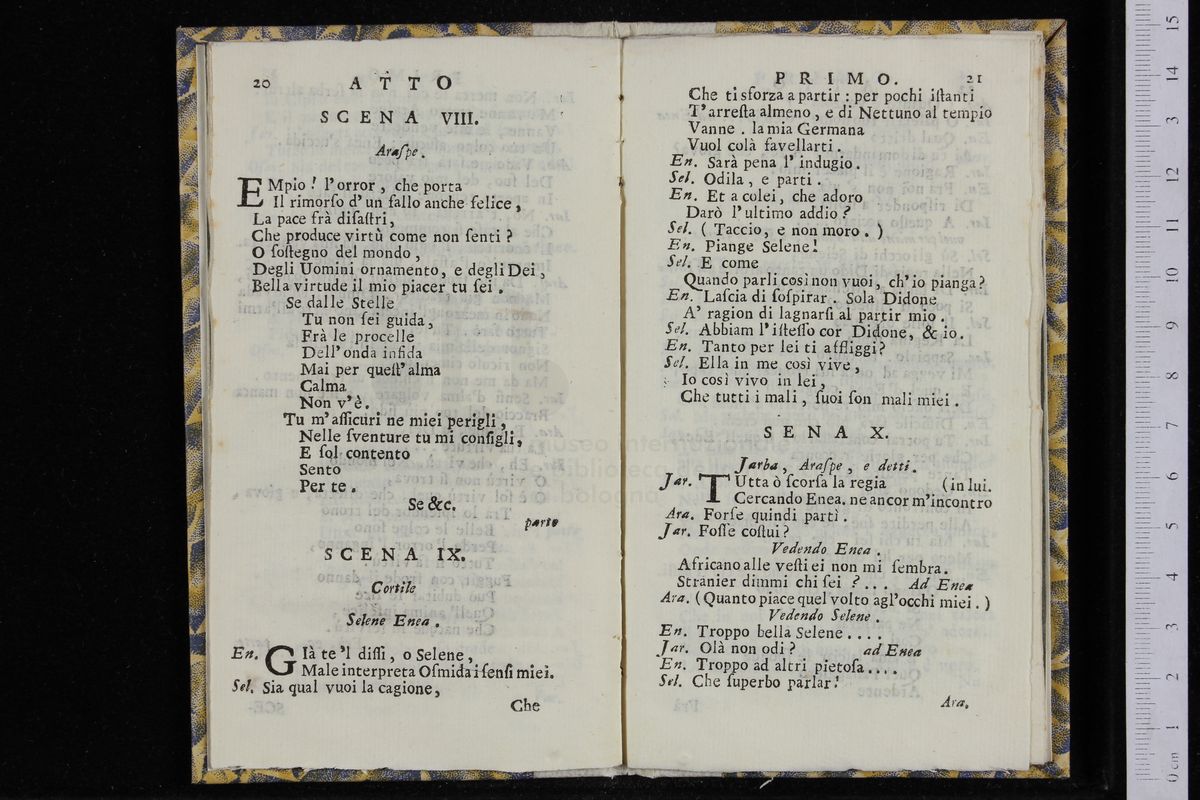 20 ATTO
SCENA VIII.
Araſpe.
EMpio! l'orror, che porta
Il rimorſo d'un fallo anche felice,
La pace frà diſaſtri,
Che produce virtù come non ſenti?
O ſoſtegno del mondo,
Degli Uomini ornamento, e degli Dei,
Bella virtude il mio piacer tu ſei.
Se dalle Stelle
Tu non ſei guida,
Frà le procelle
Dell'onda infida
Mai per queſt'alma
Calma
Non v'è.
Tu m'aſſicuri ne miei perigli,
Nelle ſventure tu mi conſigli,
E ſol contento
Sento
Per te.
Se &c.
parte
SCENA IX.
Cortile
Selene Enea.
En. GIà te'l diſſi, o Selene,
Male interpreta Oſmida i ſenſi miei.
Sel. Sia qual vuoi la cagione,
Che
PRIMO. 21
Che ti sforza a partir: per pochi iſtanti
T'arreſta almeno, e di Nettuno al tempio
Vanne. la mia Germana
Vuol colà favellarti.
En. Sarà pena l'indugio.
Sel. Odila, e parti.
En. Et a colei, che adoro
Darò l'ultimo addio?
Sel. (Taccio, e non moro.)
En. Piange Selene!
Sel. E come
Quando parli così non vuoi, ch'io pianga?
En. Laſcia di ſoſpirar. Sola Didone
A' ragion di lagnarſi al partir mio.
Sel. Abbiam l'iſteſſo cor Didone, & io.
En. Tanto per lei ti affliggi?
Sel. Ella in me così vive,
Io così vivo in lei,
Che tutti i mali, ſuoi ſon mali miei.
SENA X.
Jarba, Araſpe, e detti.
Jar. TUtta ò ſcorſa la regia (in lui.
Cercando Enea. ne ancor m'incontro
Ara. Forſe quindi partì.
Jar. Foſſe coſtui?
Vedendo Enea.
Africano alle veſti ei non mi ſembra.
Stranier dimmi chi ſei?... Ad Enea
Ara. (Quanto piace quel volto agl'occhi miei.)
Vedendo Selene.
En. Troppo bella Selene....
Jar. Olà non odi? ad Enea
En. Troppo ad altri pietoſa....
Sel. Che ſuperbo parlar!
Ara.